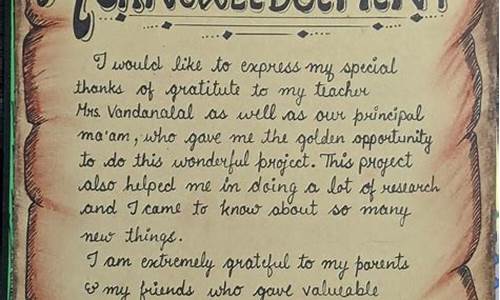 ACKNOWLEDGEMENT
I would like to express my special
thanks of gratitude to my teacher
Mrs. Vandanalal as well as our principal
ma'am, who gave me the golden opportunity
to do this wonderful project. This project
also helped me in doing a lot of research
and I came to know about so many
new things.
I am extremely grateful to my parents
& my friends who gave valueable